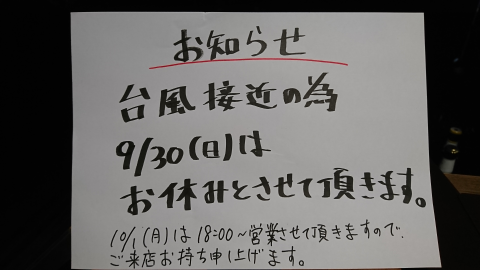 お知らせ
台風接近の為
9/30(日)は
お休みとさせて頂きます。
10/1(月)は18:00~営業させて頂きますので、
ご来店お持ち申し上げます。